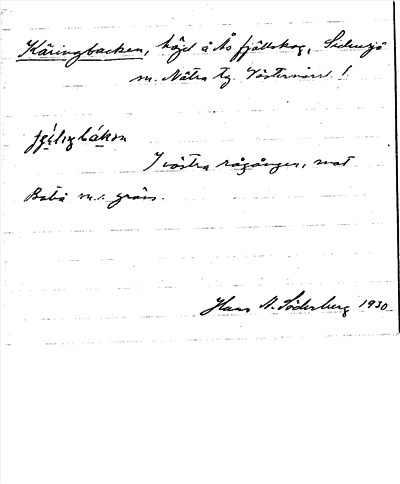 Käringbacken, höjd å Ås fjällskog, Sidensjö
sn. Nätra tg. Västernorrl. l.
I västra rågången, mot
Bobä sn:s gräns.
Hans N. Söderberg 1930